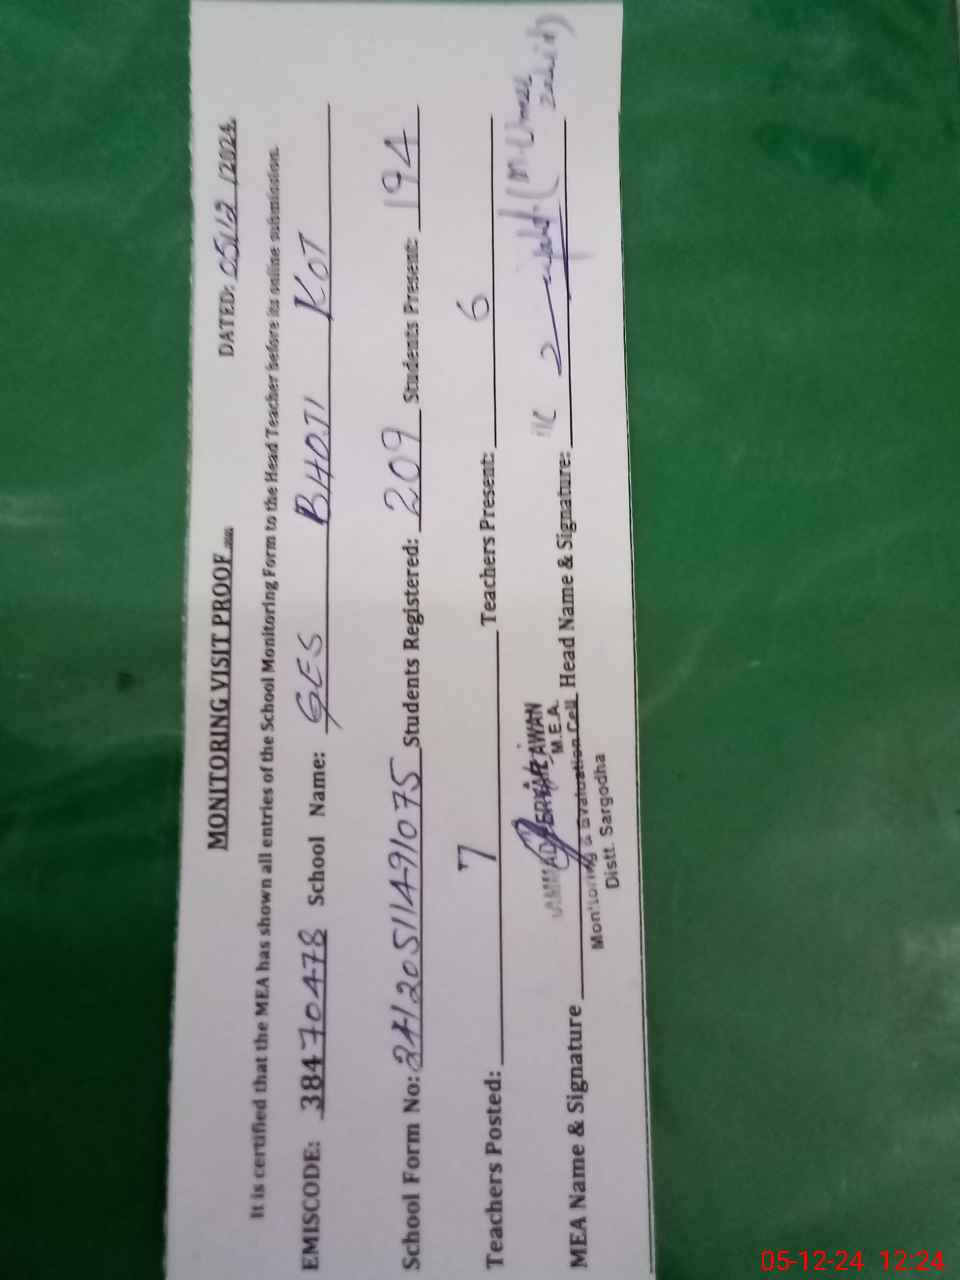 MONITORING VISIT PROOF
DATED: 05/12/2024.
It is certified that the MEA has shown all entries of the School Monitoring Form to the Head Teacher before its online submission.
EMISCODE: 38470478 School Name: GES BHOJI KOT
School Form No: 24120511491075 Students Registered: 209 Students Present: 194
Teachers Posted: 7 Teachers Present: 6
MEA Name & Signature Head Name & Signature:
AWAN
M.E.A.
Monitoring & Evaluation Cell
Distt. Sargodha
05-12-24 12:24